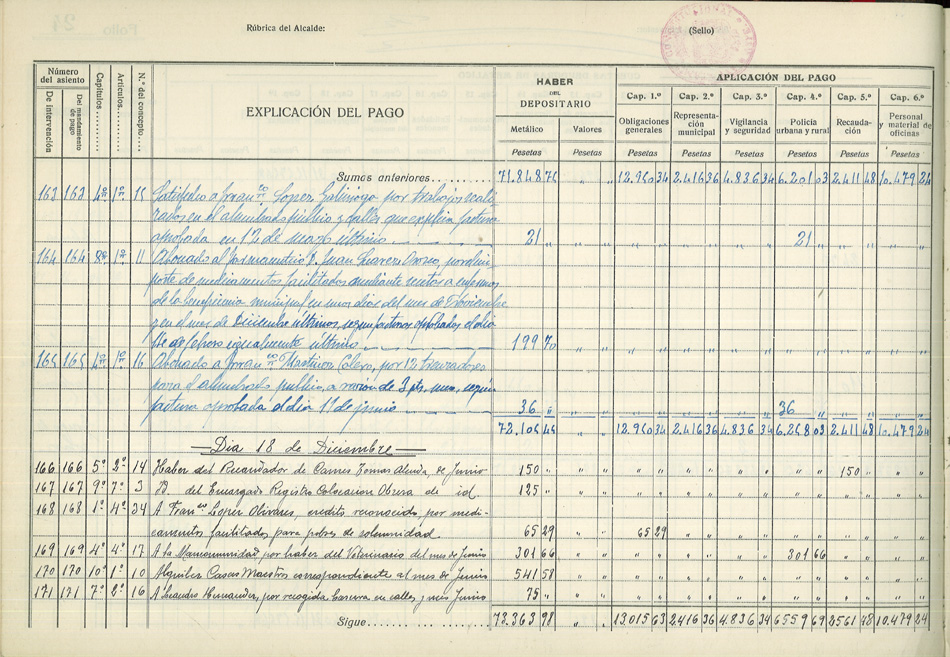 Rúbrica del Alcalde:
(Sello)
Número del asiento
De intervención
Del mandamiento de pago
Capítulos
Artículos
N.º del concepto
EXPLICACIÓN DEL PAGO
HABER
DEL
DEPOSITARIO
Metálico
Valores
Pesetas
Pesetas
APLICACIÓN DEL PAGO
Cap. 1.º
Obligaciones generales
Pesetas
Cap. 2.º
Representación municipal
Pesetas
Cap. 3.º
Vigilancia y seguridad
Pesetas
Cap. 4.º
Policía urbana y rural
Pesetas
Cap. 5.º
Recaudación
Pesetas
Cap. 6.º
Personal y material de oficinas
Pesetas
Sumas anteriores 71.848 75 " " 12.950 34 2.416 36 4.836 34 6.201 03 2.411 48 10.479 24
163 163 4º 1º 15 Satisfecho a Fran.co Lopez por trabajos reali-
zados en el alumbrado publico y calles que explica factura
aprobada en 12 de marzo último 21 " 21 "
164 164 8º 1º 11 Abonado al farmaceutico D. Juan Orozco, por el im-
porte de medicamentos facilitados mediante recetas a enfermos
de la beneficencia municipal en unos dias del mes de Noviembre
y en el mes de Diciembre últimos, segun facturas aprobadas el dia
de febrero igualmente último 199 70
165 165 4º 1º 16 Abonado a Fran.co Martinez Calero, por 12
para el alumbrado publico, a razón de 3 pts. una, según
factura aprobada el dia 1º de junio 36 " 36 "
72.105 45 " " 12.950 34 2.416 36 4.836 34 6.258 03 2.411 48 10.479 24
Dia 18 de Diciembre
166 166 5º 2º 14 Haber del Recaudador de Carnes Tomas, de Junio 150 " 150 "
167 167 9º 7º 3 Id. del Encargado Registro Colocacion Obrera de id. 125 "
168 168 1º 4º 34 A Fran.co Lopez Olivares, credito reconocido, por medi-
camentos facilitados para pobres de solemnidad. 65 29 65 29
169 169 4º 4º 17 A la Mancomunidad por haber del Veterinario del mes de Junio 301 66 301 66
170 170 10º 1º 10 Alquiler Casas Maestros correspondiente al mes de Junio 541 58
171 171 7º 2º 16 A Leandro Hernandez, por recogida basura en calles, mes Junio 75 "
Sigue 73.363 98 " " 13.015 63 2.416 36 4.836 34 6559 69 2561 48 10.479 24